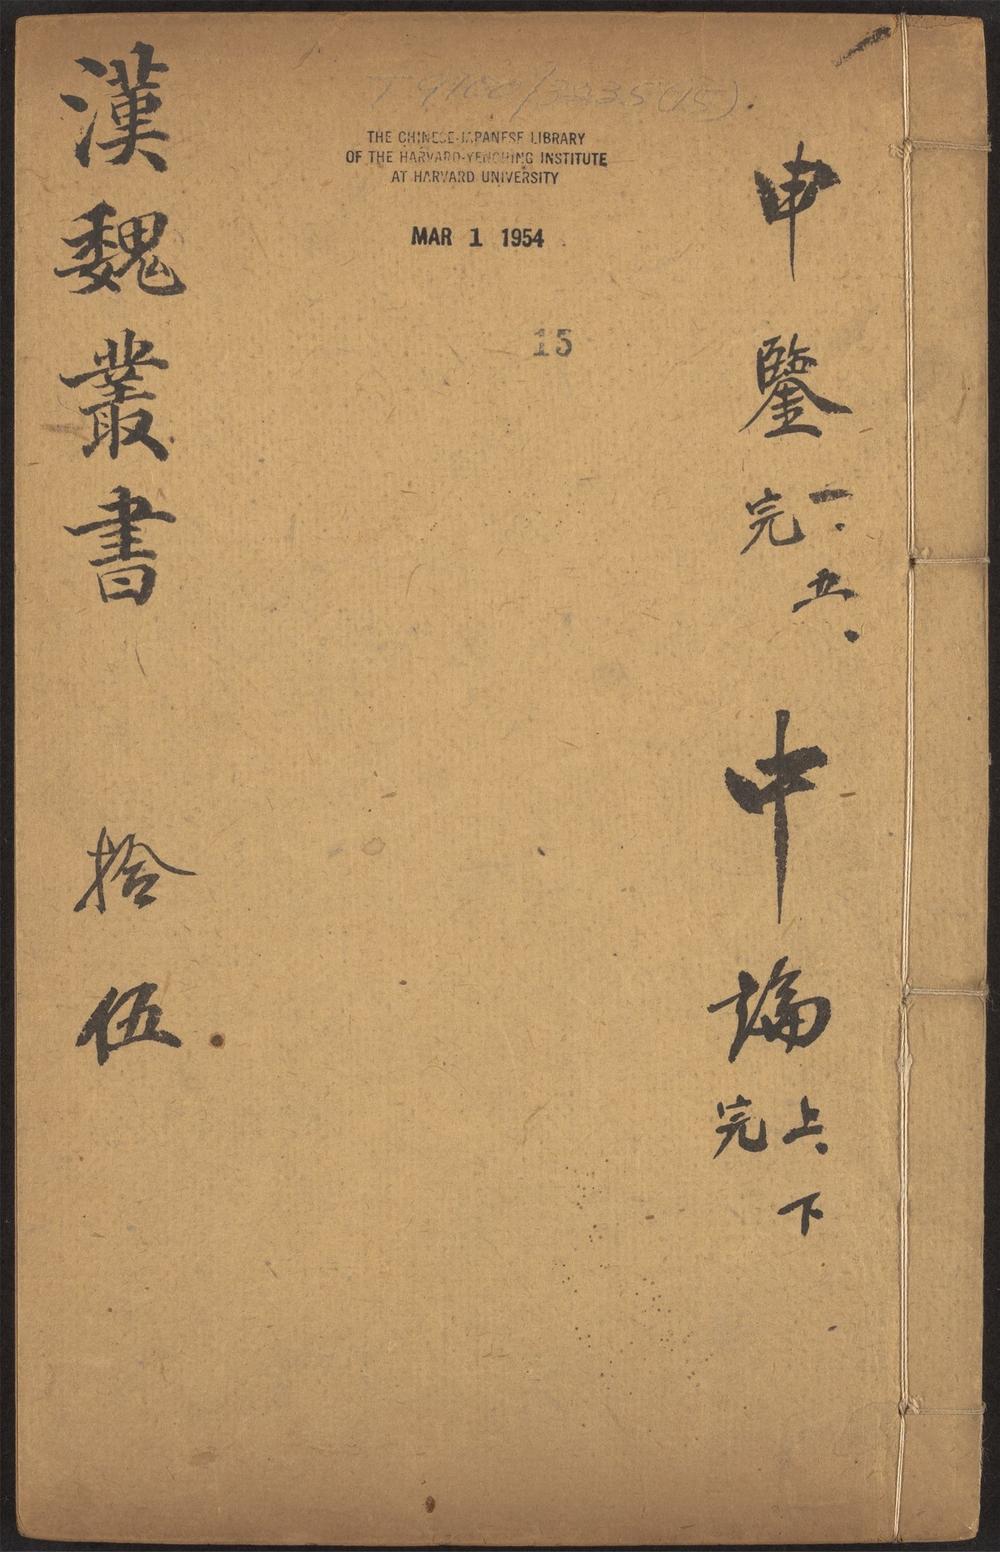 申鑒 一、五、完
中論 上、下 完
T 9100/3235(15)
THE CHINESE-JAPANESE LIBRARY
OF THE HARVARD-YENCHING INSTITUTE
AT HARVARD UNIVERSITY
MAR 1 1954
15
漢魏叢書 拾伍